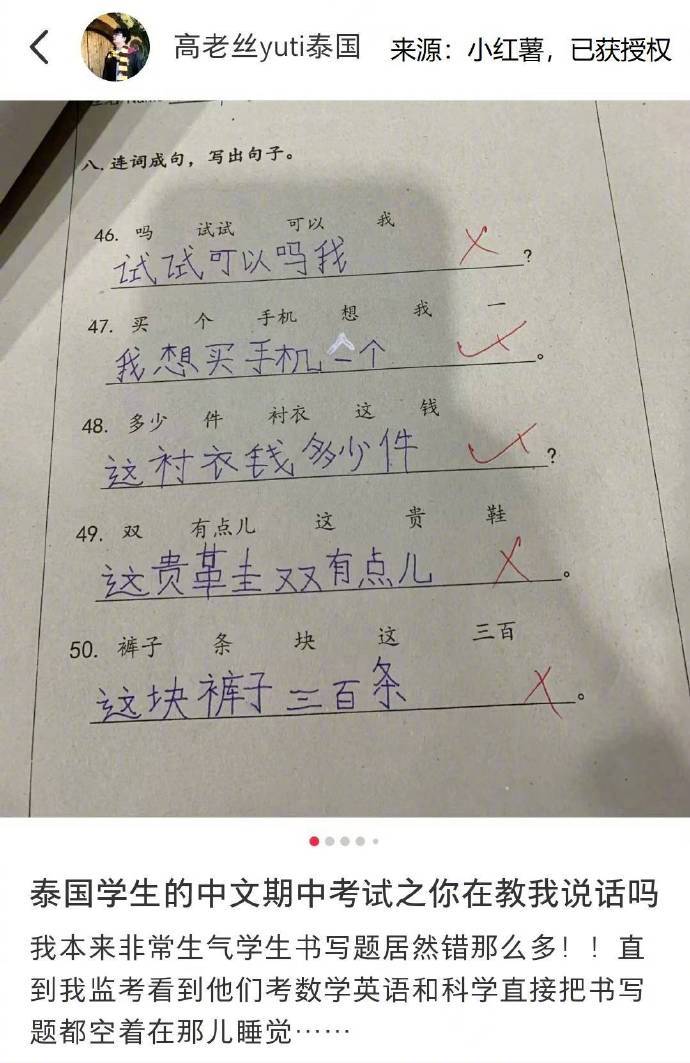 高老丝yuti泰国 来源：小红薯，已获授权
八、连词成句，写出句子。
46. 吗 试试 可以 我
试试可以吗我 ?
47. 买 个 手机 想 我 一
我想买手机一个 。
48. 多少 件 衬衣 这 钱
这衬衣钱多少件 ?
49. 双 有点儿 这 贵 鞋
这贵鞋双有点儿 。
50. 裤子 条 块 这 三百
这块裤子三百条 。
泰国学生的中文期中考试之你在教我说话吗
我本来非常生气学生书写题居然错那么多！！直
到我监考看到他们考数学英语和科学直接把书写
题都空着在那儿睡觉……